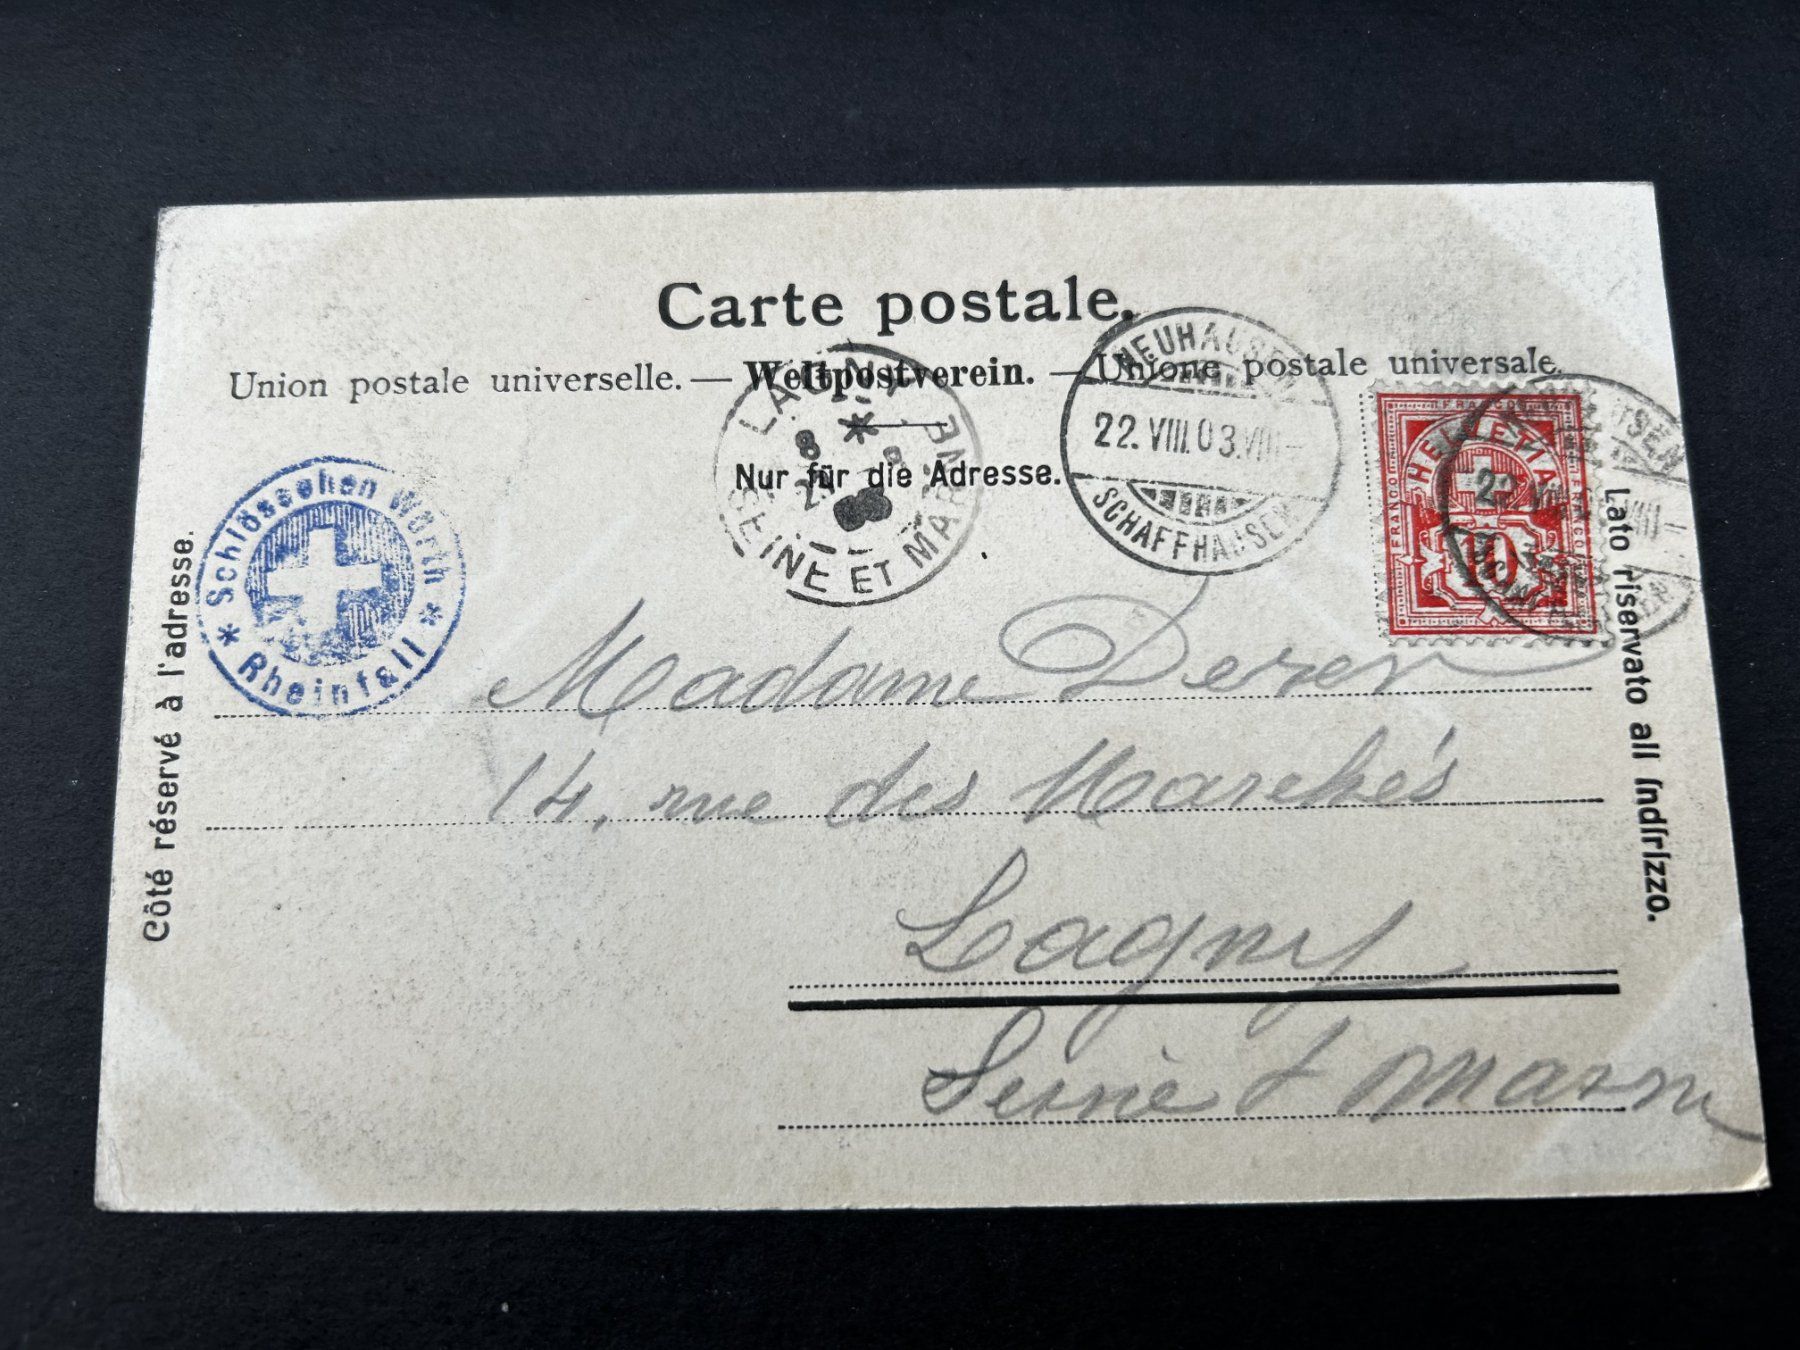 Carte postale.
Union postale universelle. — Weltpostverein. — Unione postale universale.
Nur für die Adresse.
Côté réservé à l'adresse.
Lato riservato all indirizzo.
* Schlösschen Wörth *
Rheinfall
LAGNY
SEINE ET MARNE
NEUHAUSEN
22. VIII. 03. VIII –
SCHAFFHAUSEN
FRANCO
HELVETIA
FRANCO
FRANCO
10
Madame Derer
14, rue des Marchés
Lagny
Seine & Marne